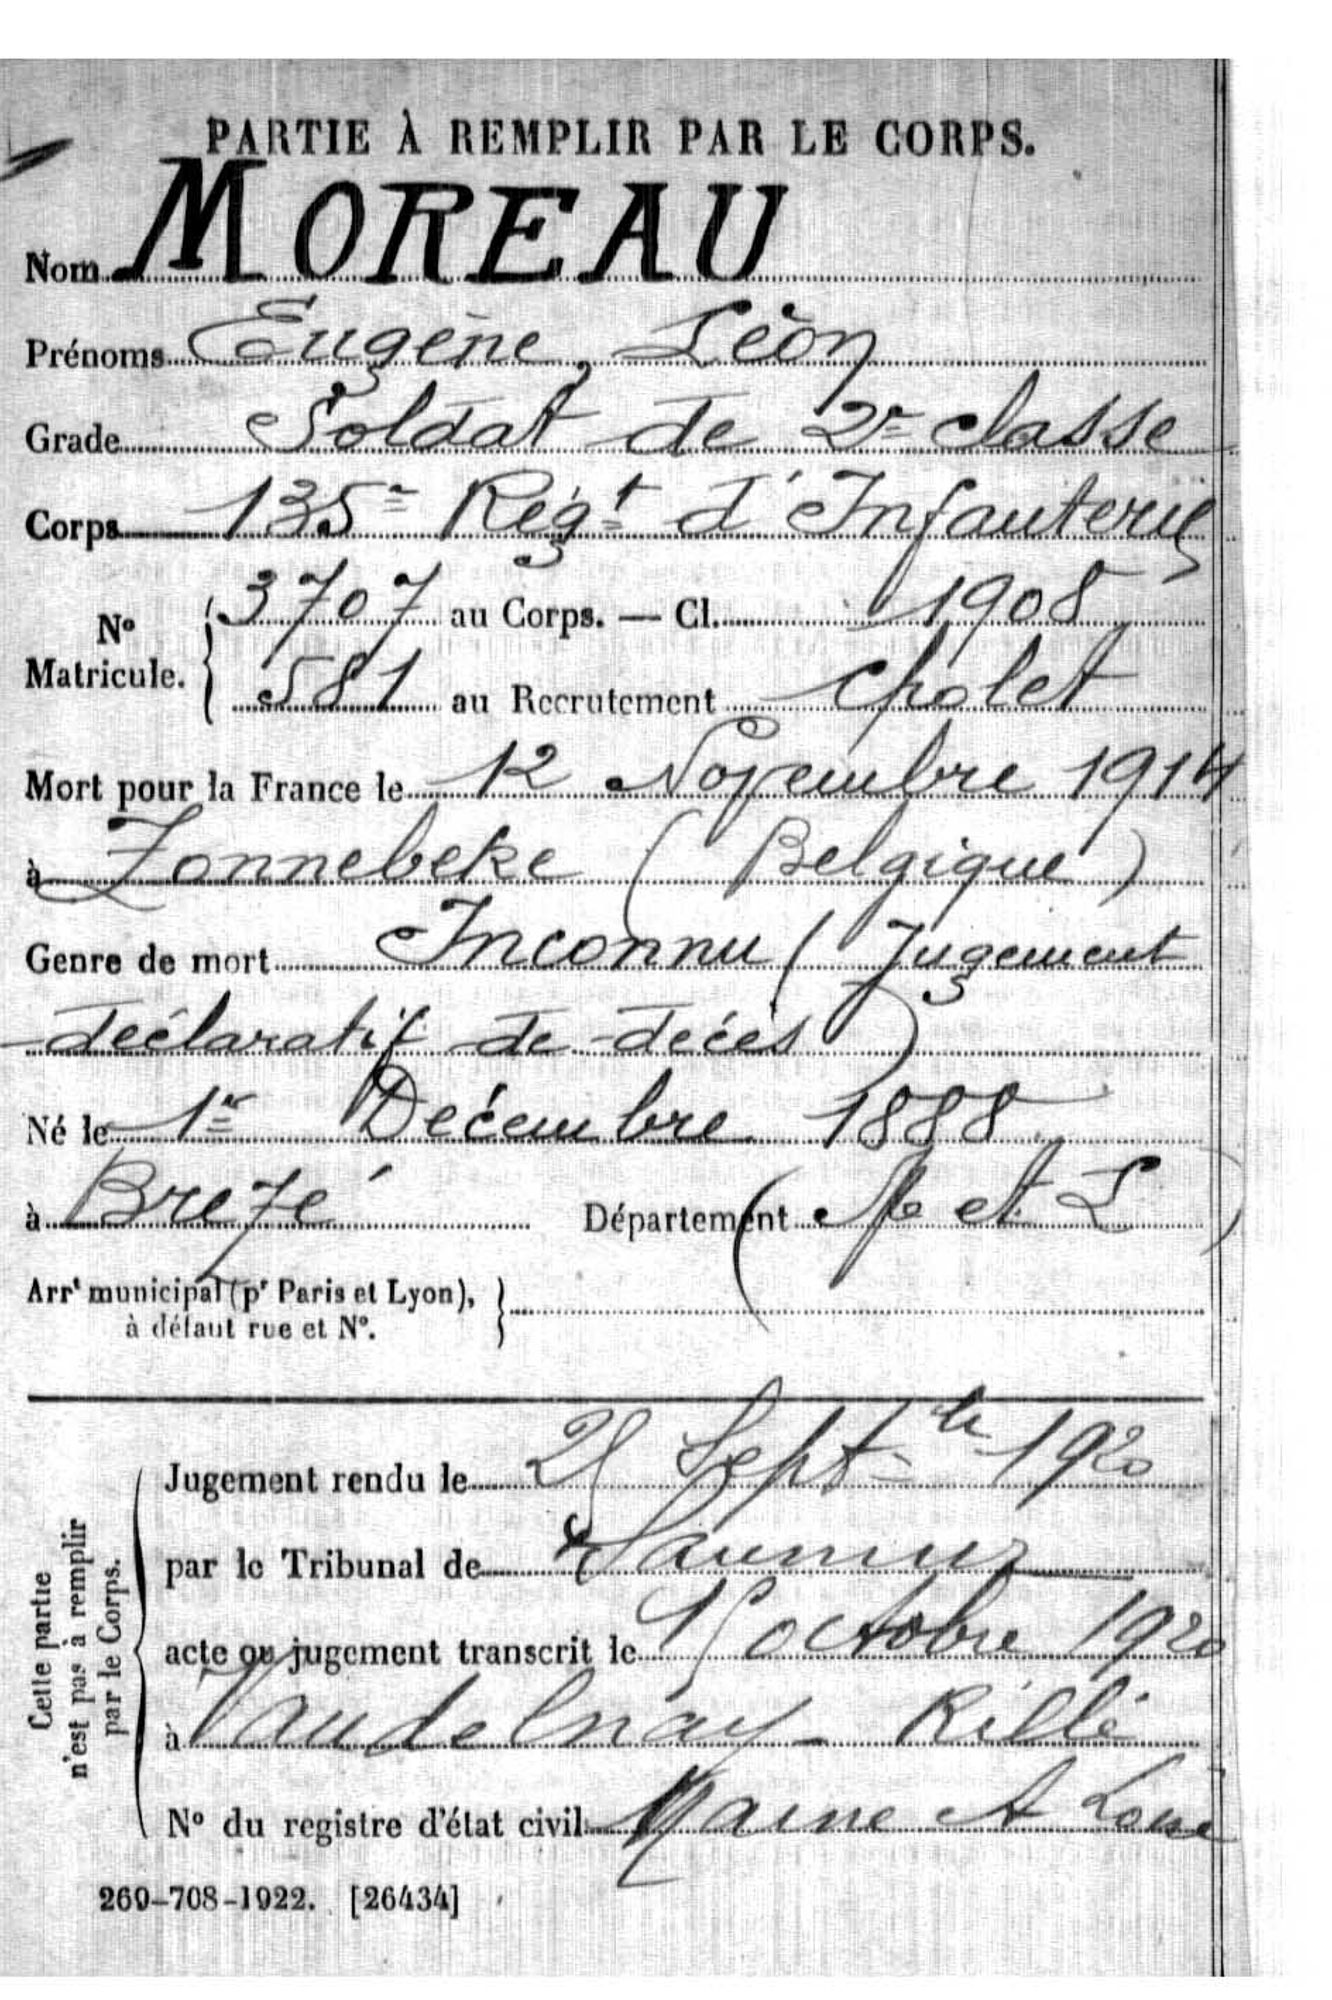 PARTIE À REMPLIR PAR LE CORPS.
Nom MOREAU
Prénoms Eugène, Léon
Grade Soldat de 2e classe
Corps 135e Régt d'Infanterie
No Matricule. { 3707 au Corps. — Cl. 1908
581 au Recrutement Cholet
Mort pour la France le 12 Novembre 1914
à Zonnebeke (Belgique)
Genre de mort Inconnu (Jugement
déclaratif de décès)
Né le 1er Décembre 1888
à Brezé Département (M et L)
Arrt municipal (pr Paris et Lyon), }
à défaut rue et No.
Cette partie
n'est pas à remplir
par le Corps.
Jugement rendu le Septbre 1920
par le Tribunal de Saumur
acte ou jugement transcrit le octobre 1920
à Vaudelnay-Rillé
No du registre d'état civil Maine et Loire
269-708-1922. [26434]